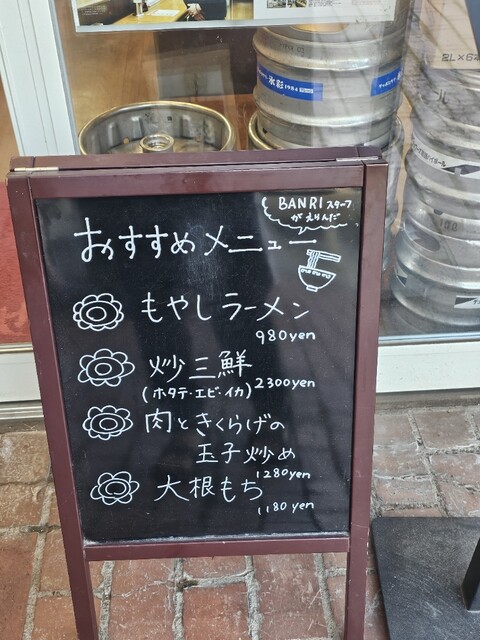 氷彩 1984
2L×6
BANRIスタッフ
がえらんだ
おすすめメニュー
もやしラーメン
980yen
炒三鮮
(ホタテ・エビ・イカ) 2300yen
肉ときくらげの
玉子炒め
1280yen
大根もち
1180yen